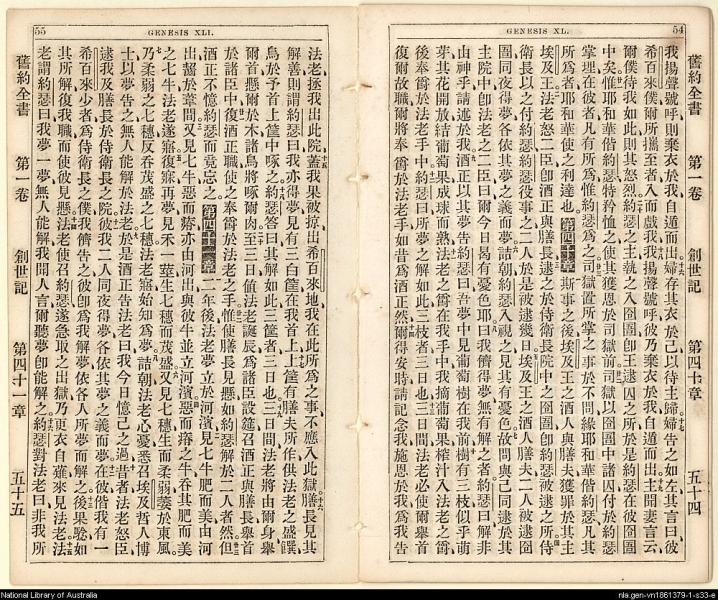 54
GENESIS XL.
舊約全書 第一卷 創世記 第四十章 五十四
我揚聲號呼則棄衣於我自遁而出婦存其衣於己以待主歸婦告之如左其言曰彼
希百來僕爾所攜至者入而戲我我揚聲號呼彼乃棄衣於我自遁而出主聞妻言云
爾僕待我如此則其怒烈約瑟之主執之入囹圄卽王逮囚之所於是約瑟在彼囹圄
中矣惟耶和華偕約瑟特矜恤之使其獲恩於司獄前司獄以囹圄中諸囚付於約瑟
掌理在彼者凡有所爲惟約瑟爲之司獄置所掌之事於不問緣耶和華偕約瑟凡其
所爲者耶和華使之利達也第四十章斯事之後埃及王之酒人與膳夫獲罪於其主
埃及王法老怒二臣卽酒正與膳長逮之於侍衛長院中之囹圄卽約瑟被逮之所侍
衛長以之付約瑟約瑟役事之二人於是被逮幾日埃及王之酒人膳夫二人被逮囹
圄同夜得夢各依其夢之義而夢詰朝約瑟入視之見其有憂色故問與己同逮於其
主院中卽法老之二臣曰爾今日曷有憂色耶曰我儕得夢無有解之者約瑟曰解非
由神乎請述於我酒正以其夢告約瑟曰吾夢中見葡萄樹在我前樹有三枝似乎萌
芽其花開放結葡萄果成球而熟法老之爵在我手中我摘葡萄果榨汁入法老之爵
後奉爵於法老手中約瑟曰所夢之解如此三枝者三日也三日間法老必使爾舉首
復爾故職爾將奉爵於法老手如昔爲酒正然爾得安時請記念我施恩於我爲我告
55
GENESIS XLI.
法老拯我出此院蓋我果被掠出希百來地我在此所爲之事不應入此獄膳長見其
解善則謂約瑟曰我亦得夢見有三白筐在我首上上筐有膳夫所作供法老之盛饌
鳥於予首上筐中啄之約瑟答曰其解如此三筐者三日也三日間法老將由爾身舉
爾首懸爾於木諸鳥將啄爾肉至三日値法老誕辰爲諸臣設筵召酒正與膳長舉首
於諸臣中復酒正職使之奉爵於法老之手惟使膳長見懸如約瑟解於二人者然但
酒正不憶約瑟而竟忘之第四十一章二年後法老夢立於河濱見七牛肥而美由河
出齧於葦間又見七牛惡而瘠亦由河出與彼牛並立河濱惡而瘠之牛吞其肥而美
之七牛法老遂寤復寐再夢見禾一莖生七穗而茂盛又見七穗生而柔弱萎於東風
乃柔弱之七穗反吞茂盛之七穗法老寤始知爲夢詰朝法老心憂悉召埃及哲人博
士以夢告之無人能解於法老於是酒正告法老曰我今日憶己之過昔者法老怒臣
逮我及膳長於侍衛長之院彼我二人同夜得夢各依其夢之義而夢在彼偕我有一
希百來少者爲侍衛長之僕我儕告之彼卽爲我解夢依各人所夢而解之後果驗如
其所解復我職而使彼見懸法老使召約瑟遂急取之出獄乃更衣自薙來見法老法
老謂約瑟曰我夢一夢無人能解我聞人言爾聽夢卽能解之約瑟對法老曰非我所
舊約全書 第一卷 創世記 第四十一章 五十五
National Library of Australia
nla.gen-vn1861379-1-s33-e